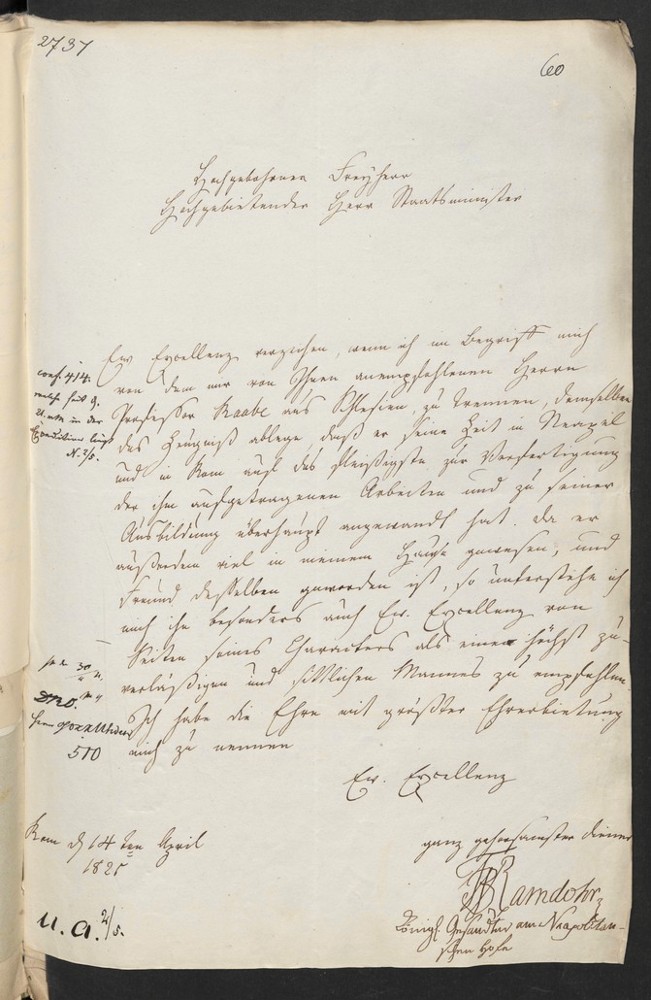 2737
60
Hochgebohrener Freyherr
Hochgebietender Herr Staatsminister
Ew Excellenz verzeihen, wenn ich im Begriff mich
von dem mir von Ihnen anempfohlenen Herrn
Professor Raabe aus Schlesien, zu trennen, demselben
das Zeugniß ablege, daß er seine Zeit in Neapel
und in Rom aufs fleißigste zur Verfertigung
der ihm aufgetragenen Arbeiten und zu seiner
Ausbildung überhaupt angewandt hat. Da er
außerdem viel in meinem Hause gewesen, und
Freund desselben geworden ist, so unterstehe ich
mich ihn besonders auch Ew. Excellenz von
Seiten seines Characters als einen höchst zu-
verläßigen und sittlichen Mannes zu empfehlen.
Ich habe die Ehre mit größter Ehrerbietung
mich zu nennen
Ew. Excellenz
ganz gehorsamster Diener
Ramdohr
Königl. Gesandter am Neapolitan-
schen Hofe
Rom d 14ten April
1821
conf. 414.
welche seit 9.
in der
Expedition liegt
N. 2/5.
510
u. a. 2/5.